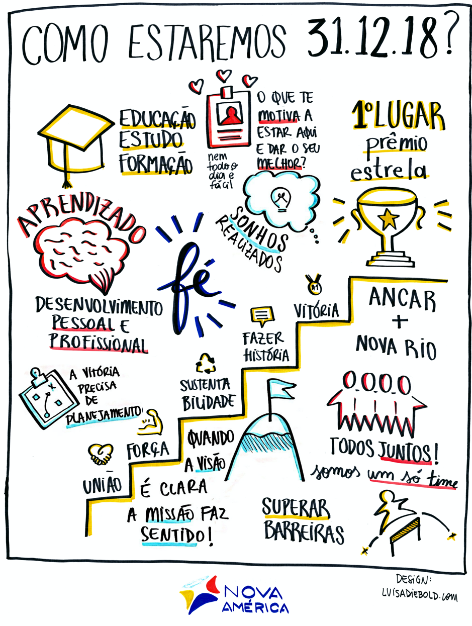 COMO ESTAREMOS 31.12.18?
EDUCAÇÃO
ESTUDO
FORMAÇÃO
nem
todo o
dia é
fácil
O QUE TE
MOTIVA A
ESTAR AQUI
E DAR O SEU
MELHOR?
1º LUGAR
prêmio
estrela
APRENDIZADO
SONHOS
REALIZADOS
fé
DESENVOLVIMENTO
PESSOAL E
PROFISSIONAL
A VITÓRIA
PRECISA
DE
PLANEJAMENTO
UNIÃO
FORÇA
SUSTENTA
BILIDADE
FAZER
HISTÓRIA
VITÓRIA
ANCAR
+
NOVA RIO
QUANDO
A VISÃO
É CLARA
A MISSÃO FAZ
SENTIDO!
TODOS JUNTOS!
somos um só time
SUPERAR
BARREIRAS
DESIGN:
LUISADIEBOLD.COM
NOVA
AMÉRICA